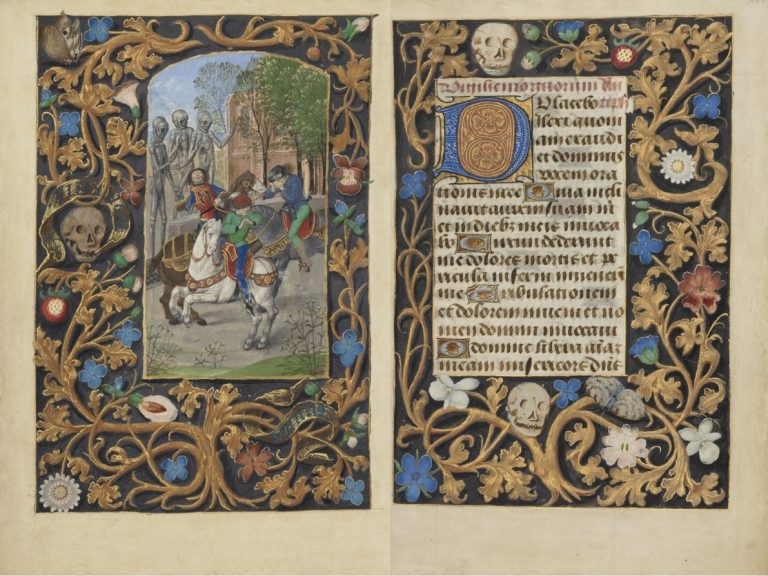 Vigilie mortuorum
Placebo
Dilexi quoni
am exaudi
et dominus
vocem ora
tionis mee Quia incli
navit aurem suam m
et in dieb9 meis invoca
bo Circumdederunt
me dolores mortis et pe
ricula inferni invener
me Tribulationem
et dolorem inveni et no
men domini invocavi
O domine libera aīam
meam misericors dn̄s